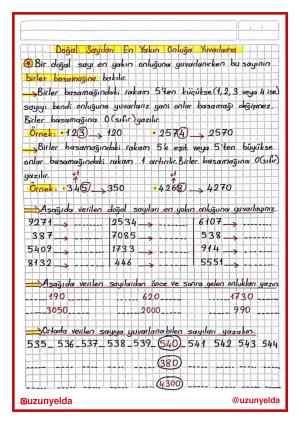 Doğal Sayıları En Yakın Onluğa Yuvarlama
Bir doğal sayı en yakın onluğuna yuvarlanırken bu sayının
birler basamağına bakılır.
→Birler basamağındaki rakam 5'ten küçükse (1,2,3 veya 4 ise)
sayıyı kendi onluğuna yuvarlarız yani onlar basamağı değişmez.
Birler basamağına 0(sıfır) yazılır.
Örnek: • 123 → 120 • 2574 → 2570
→Birler basamağındaki rakam 5'e eşit veya 5'ten büyükse
onlar basamağındaki rakam 1 artırılır. Birler basamağına 0(sıfır)
yazılır.
+1 +1
Örnek: • 345 → 350 • 4268 → 4270
→Aşağıda verilen doğal sayıları en yakın onluğuna yuvarlayınız.
9271 → 2534 → 6107 →
387 → 7085 → 538 →
5409 → 1733 → 914 →
8132 → 446 → 5551 →
→Aşağıda verilen sayılardan önce ve sonra gelen onlukları yazın.
190 620 1730
3050 2000 990
→Ortada verilen sayıya yuvarlanabilen sayıları yazalım.
535 536 537 538 539 540 541 542 543 544
380
4300
@uzunyelda @uzunyelda